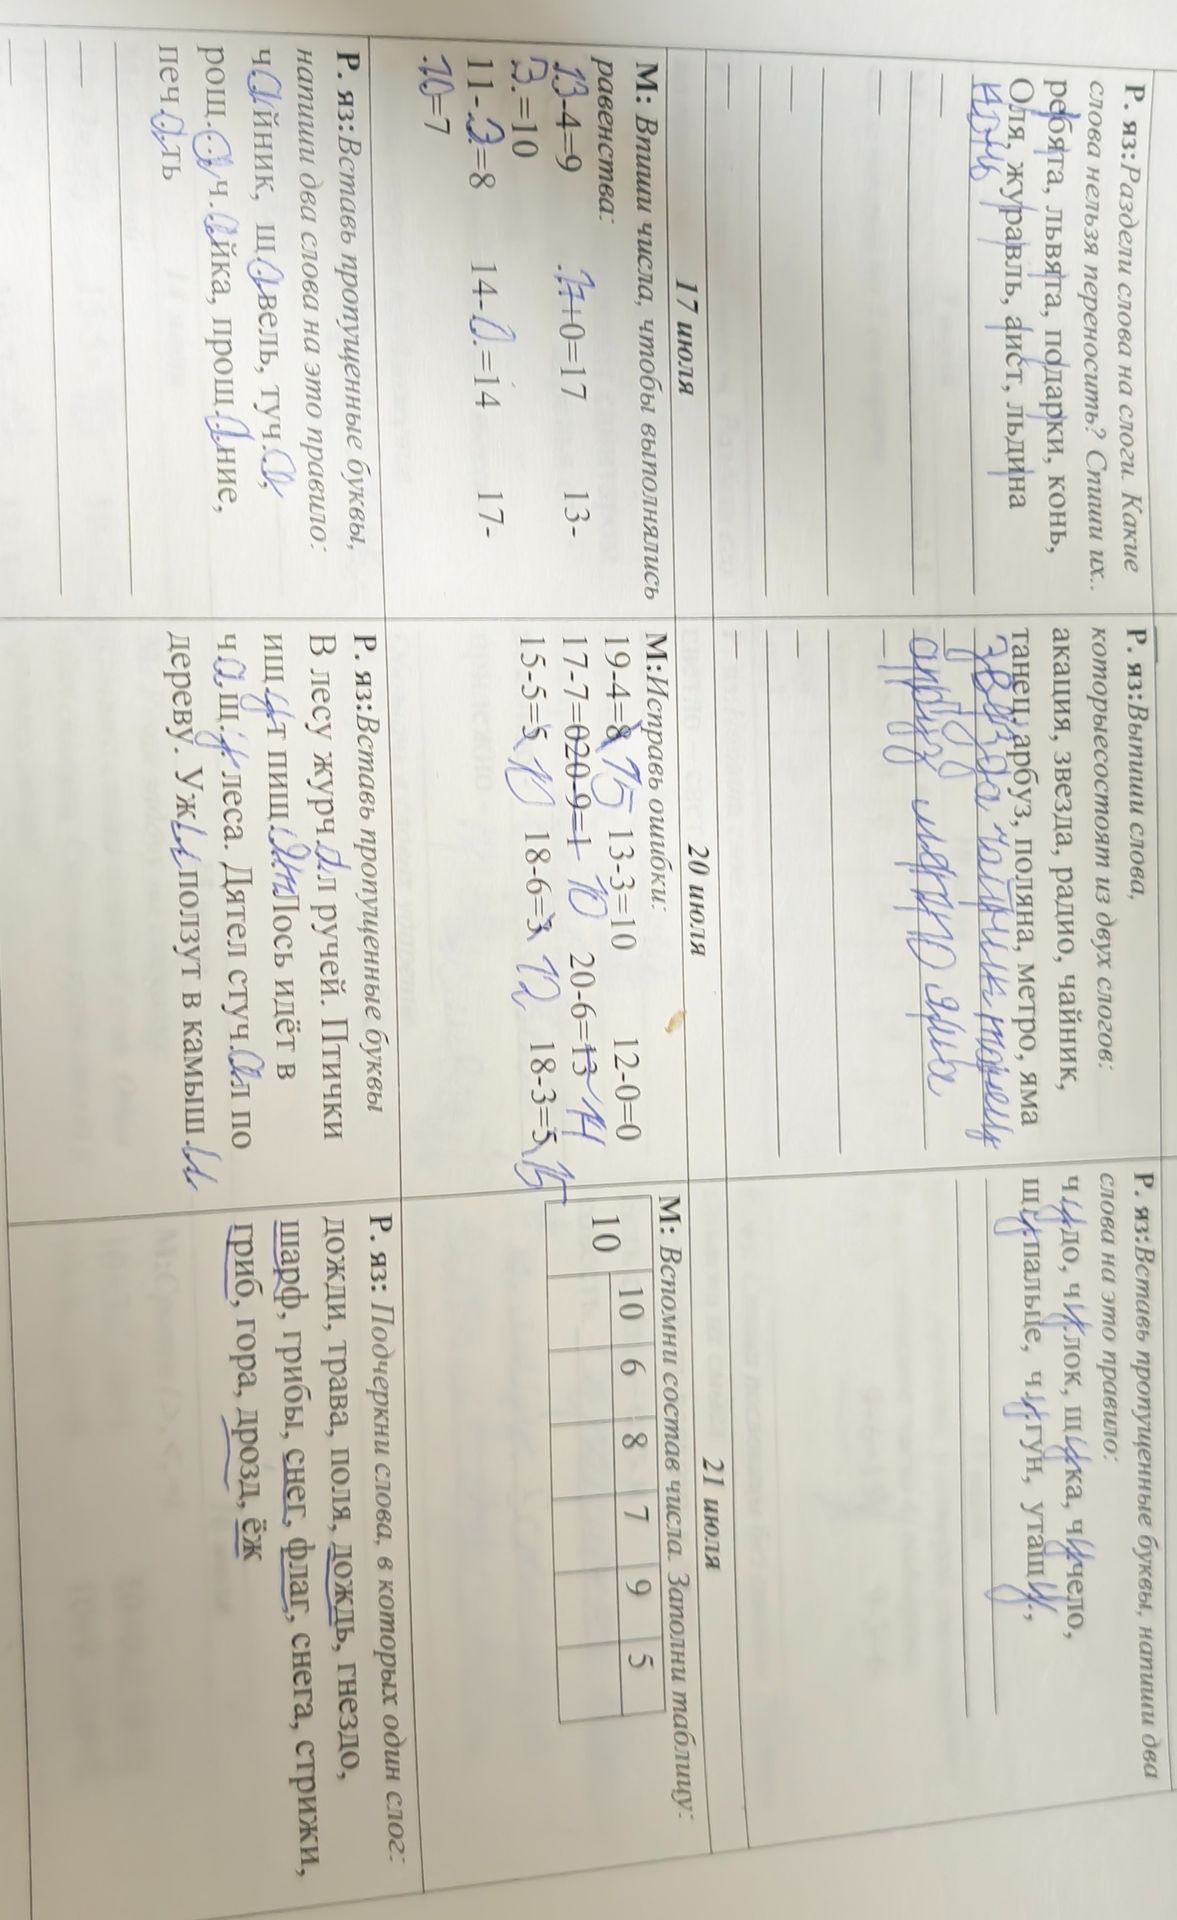 Р. яз:Раздели слова на слоги. Какие
слова нельзя переносить? Спиши их..
ребята, львята, подарки, конь,
Оля, журавль, аист, льдина
конь
Р. яз:Выпиши слова,
которыесостоят из двух слогов:
акация, звезда, радио, чайник,
танец, арбуз, поляна, метро, яма
звезда чайник танец
арбуз метро яма
Р. яз:Вставь пропущенные буквы, напиши два
слова на это правило:
чудо, чулок, щука, чучело,
щупальце, чугун, утащу.,
17 июля
20 июля
21 июля
М: Впиши числа, чтобы выполнялись
равенства:
13-4=9 17+0=17 13-
3.=10
11-3.=8 14-0.=14 17-
.10=7
М:Исправь ошибки:
19-4=8 15 13-3=10 12-0=0
17-7=020-9=1 10 20-6=13 14
15-5=5 10 18-6=3 12 18-3=5 15
М: Вспомни состав числа. Заполни таблицу:
10 10 6 8 7 9 5
Р. яз:Вставь пропущенные буквы,
напиши два слова на это правило:
чайник, щ.авель, туч.а,
рощ.а, ч.айка, прощ.ание,
печ.ать
Р. яз:Вставь пропущенные буквы
В лесу журч.ал ручей. Птички
ищ.ут пищ.у. Лось идёт в
ч.ащ.у. леса. Дятел стуч.ал по
дереву. Ужи ползут в камыш.и
Р. яз: Подчеркни слова, в которых один слог:
дожди, трава, поля, дождь, гнездо,
шарф, грибы, снег, флаг, снега, стрижи,
гриб, гора, дрозд, ёж